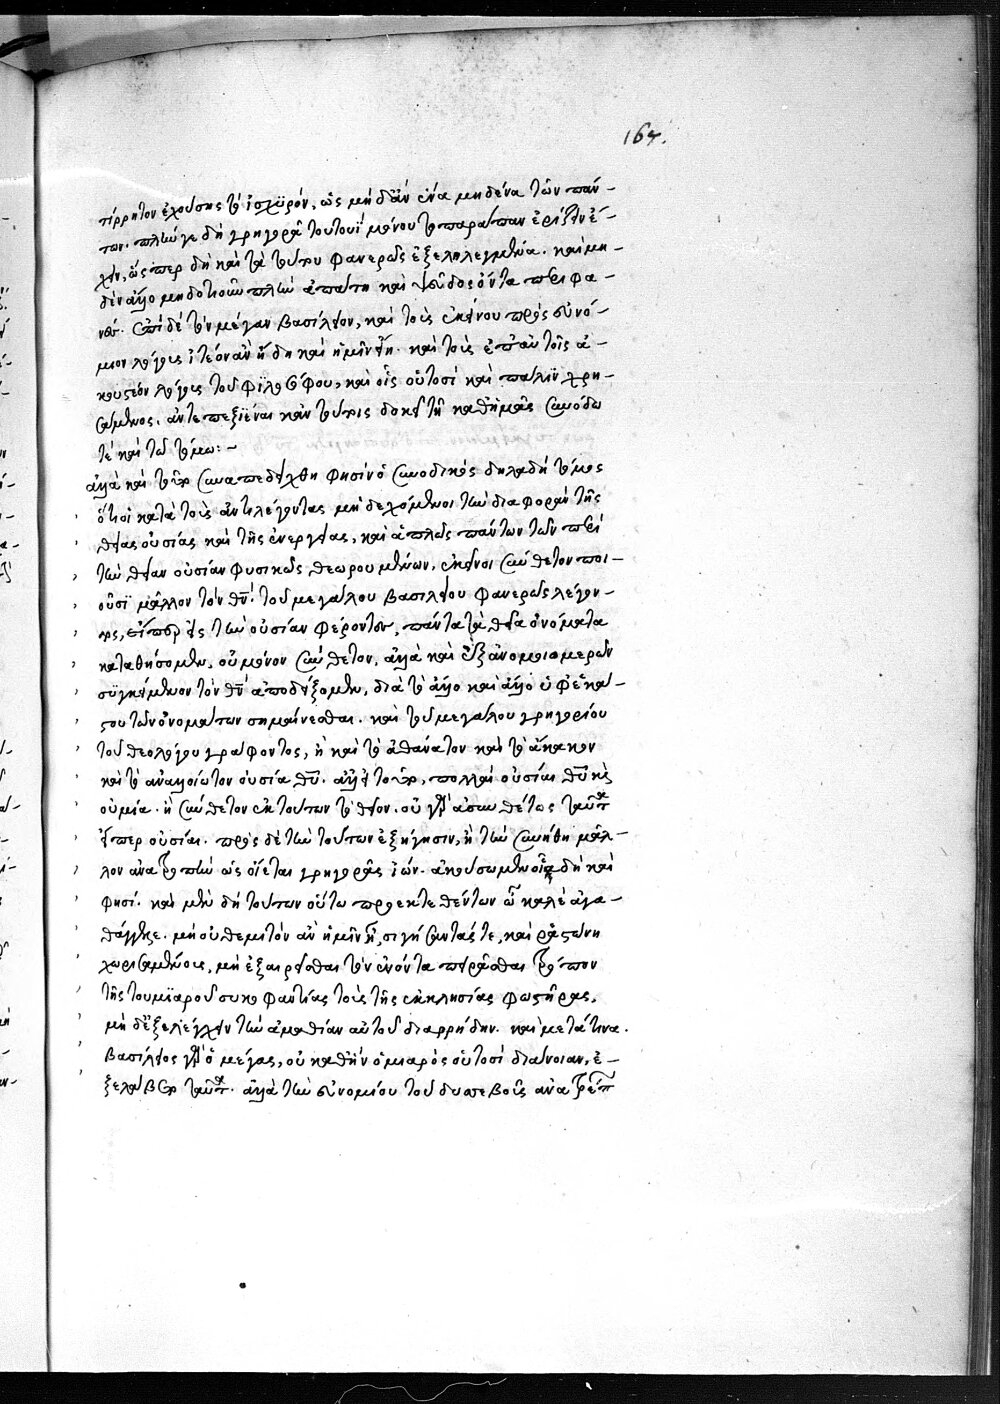 167.
τίρρητον ἐχούσης τὸ ἰσχυρόν, ὡς μὴ δ' ἂν ἕνα μηδένα τῶν πάν-
των. πλήν γε δὴ γρηγορᾶ τουτουῒ μόνου τὸ παράπαν ἐρίζειν ἔ-
χειν, ὥσπερ δὴ καὶ τὰ τούτου φανερῶς ἐξεληλεγμένα. καὶ μη-
δὲν ἄλλο μηδοτιοῦν πλὴν ἀπάτη καὶ ψεῦδος ὄντα περιφα-
νές. ἐπὶ δὲ τὸν μέγαν βασίλειον, καὶ τοὺς ἐκείνου πρὸς εὐνό-
μιον λόγους ἰτέον ἂν ἤδη καὶ ἡμῖν εἴη. καὶ τοὺς ἐπ' αὐτοῖς ἀ-
κουστέον λόγους τοῦ φιλοσόφου, καὶ οἷς οὑτοσὶ καὶ πάλιν χρη-
σάμενος. ἀντεπεξιέναι κἂν τούτοις δοκεῖ τῇ καθ' ἡμᾶς συνόδω
τὲ καὶ τῶ τόμω: -
ἀλλὰ καὶ τοῦτο συναπεδείχθη φησὶν ὁ συνοδικὸς δηλαδὴ τόμος
ὅτι οἱ κατὰ τοὺς ἀντιλέγοντας μὴ δεχόμενοι τὴν διαφορὰν τῆς
θείας οὐσίας καὶ τῆς ἐνεργείας, καὶ ἁπλῶς πάντων τῶν περὶ
τὴν θείαν οὐσίαν φυσικῶς θεωρουμένων, ἐκεῖνοι σύνθετον ποι-
οῦσϊ μᾶλλον τὸν θν̄. τοῦ μεγάλου βασιλείου φανερῶς λέγον-
τος, εἴπερ εἰς τὴν οὐσίαν φέροντες, πάντα τὰ θεῖα ὀνόματα
καταθήσομεν, οὐ μόνον σύνθετον, ἀλλὰ καὶ ἐξ ἀνομοιομερῶν
συγκείμενον τὸν θν̄ ἀποδείξομεν, διὰ τὸ ἄλλο καὶ ἄλλο ὑφ' ἑκά-
στου τῶν ὀνομάτων σημαίνεσθαι. καὶ τοῦ μεγάλου γρηγορίου
τοῦ θεολόγου γράφοντος, ἢ καὶ τὸ ἀθάνατον καὶ τὸ ἄκακον
καὶ τὸ ἀναλλοίωτον οὐσία θῡ. ἀλλ' εἰ τοῦτο, πολλαὶ οὐσίαι θῡ καὶ
οὐ μία. ἢ σύνθετον ἐκ τούτων τὸ θεῖον. οὐ γὰρ ἀσυνθέτως ταῦτα
εἴπερ οὐσίαι. πρὸς δὲ τὴν τούτων ἐξήγησιν, ἢ τὴν συνήθη μᾶλ-
λον ἀνατροπὴν ὡς οἴεται γρηγορᾶς ἰών. ἀκουσώμεθα οἷα δὴ καὶ
φησί. καὶ μὲν δὴ τούτων οὕτω προεκτεθέντων ὦ καλὲ ἀγα-
θάγγελε. μὴ οὐ θεμιτὸν ἂν ἡμῖν εἴη, σιγῇ συντάσσεσθαι, καὶ ῥαστώνη
χωρισαμένοις, μὴ ἐξαιρεῖσθαι τὸν ἐνόντα πειρᾶσθαι τρόπον
τῆς τοῦ μιαροῦ συκοφαντίας τοὺς τῆς ἐκκλησίας φωστῆρας,
μὴ δ' ἐξελέγχειν τὴν ἀμαθίαν αὐτοῦ διαρρήδην. καὶ μετά τινα.
βασίλειος γὰρ ὁ μέγας, οὐ καθ' ἣν ὁ μιαρὸς οὑτοσὶ διάνοιαν, ἐ-
ξέλαβεν ταῦτα. ἀλλὰ τὴν εὐνομίου τοῦ δυσσεβοῦς ἀνατρέπ